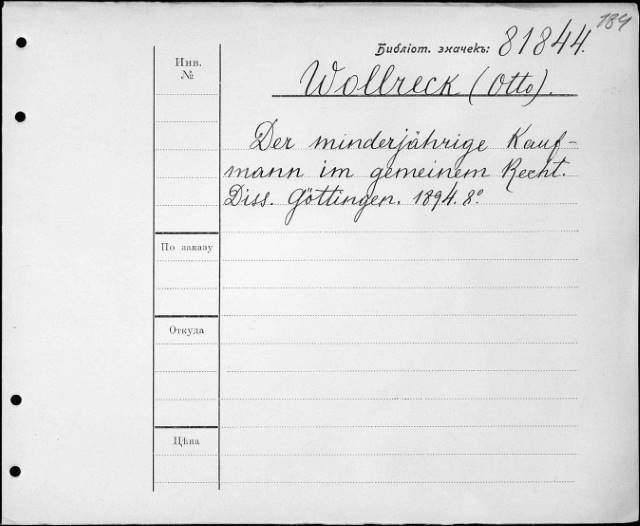 184
Библіот. значекъ: 81844.
Инв.
№
Wollreck (Otto).
Der minderjährige Kauf-
mann im gemeinem Recht.
Diss. Göttingen. 1894. 8°.
По заказу
Откуда
Цѣна